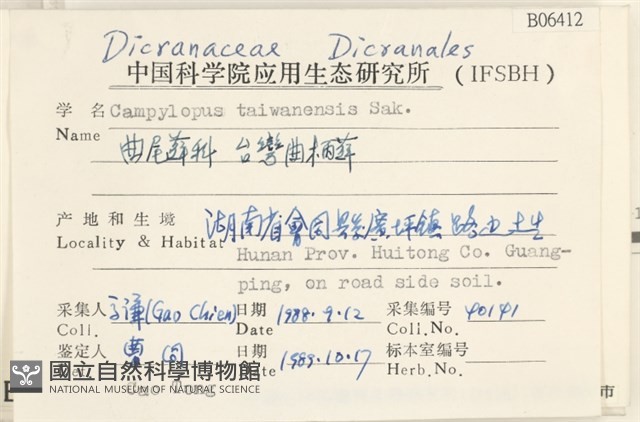 B06412
Dicranaceae Dicranales
中国科学院应用生态研究所 (IFSBH)
学 名 Campylopus taiwanensis Sak.
Name
曲尾蘚科 台灣曲柄蘚
产 地 和 生 境 湖南省會同縣廣坪镇 路边土生
Locality & Habitat Hunan Prov. Huitong Co. Guang-
ping, on road side soil.
采集人 (Gao Chien) 日期 1988.9.12 采集编号 40141
Coll. Date Coll.No.
鉴定人 曹同 日期 1989.10.17 标本室编号
Herb.No.
國立自然科學博物館
NATIONAL MUSEUM OF NATURAL SCIENCE
市